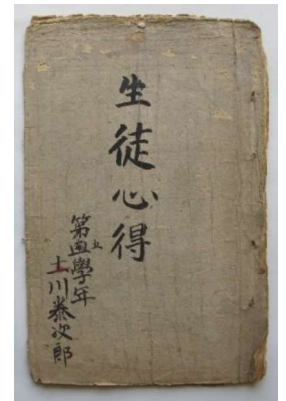 生徒心得
第五學年
土川泰次郎